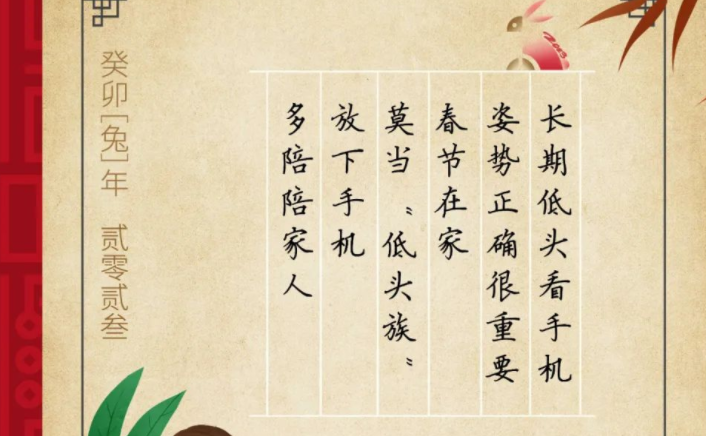 长期低头看手机
姿势正确很重要
春节在家
莫当“低头族”
放下手机
多陪陪家人
癸卯[兔]年 贰零贰叁